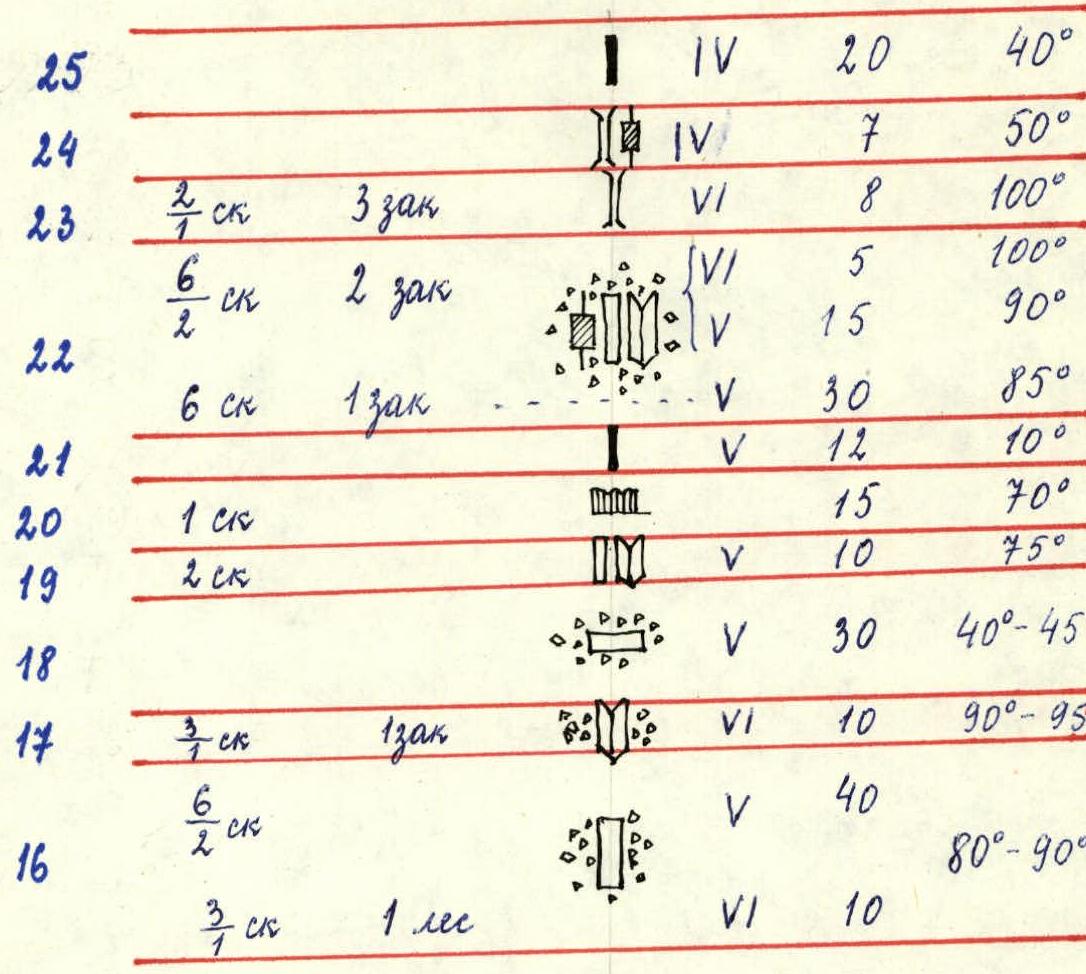 25 IV 20 40°
24 IV 7 50°
23 2/1 ск 3 зак VI 8 100°
6/2 ск 2 зак VI 5 100°
V 15 90°
22
6 ск 1 зак V 30 85°
21 V 12 10°
20 1 ск 15 70°
19 2 ск V 10 75°
18 V 30 40°-45
17 3/1 ск 1 зак VI 10 90°-95
6/2 ск V 40
16 80°-90°
3/1 ск 1 лес VI 10